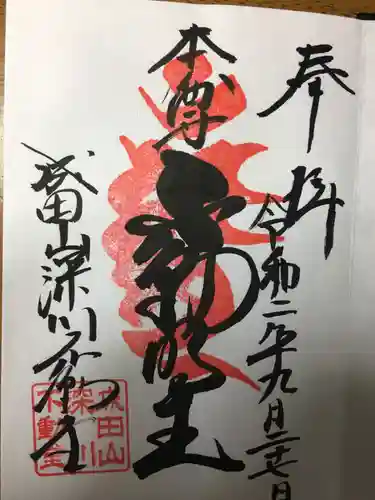 奉拝
令和二年九月二十七日
本尊
不動明王
成田山深川不動堂
成田山
深川
不動堂